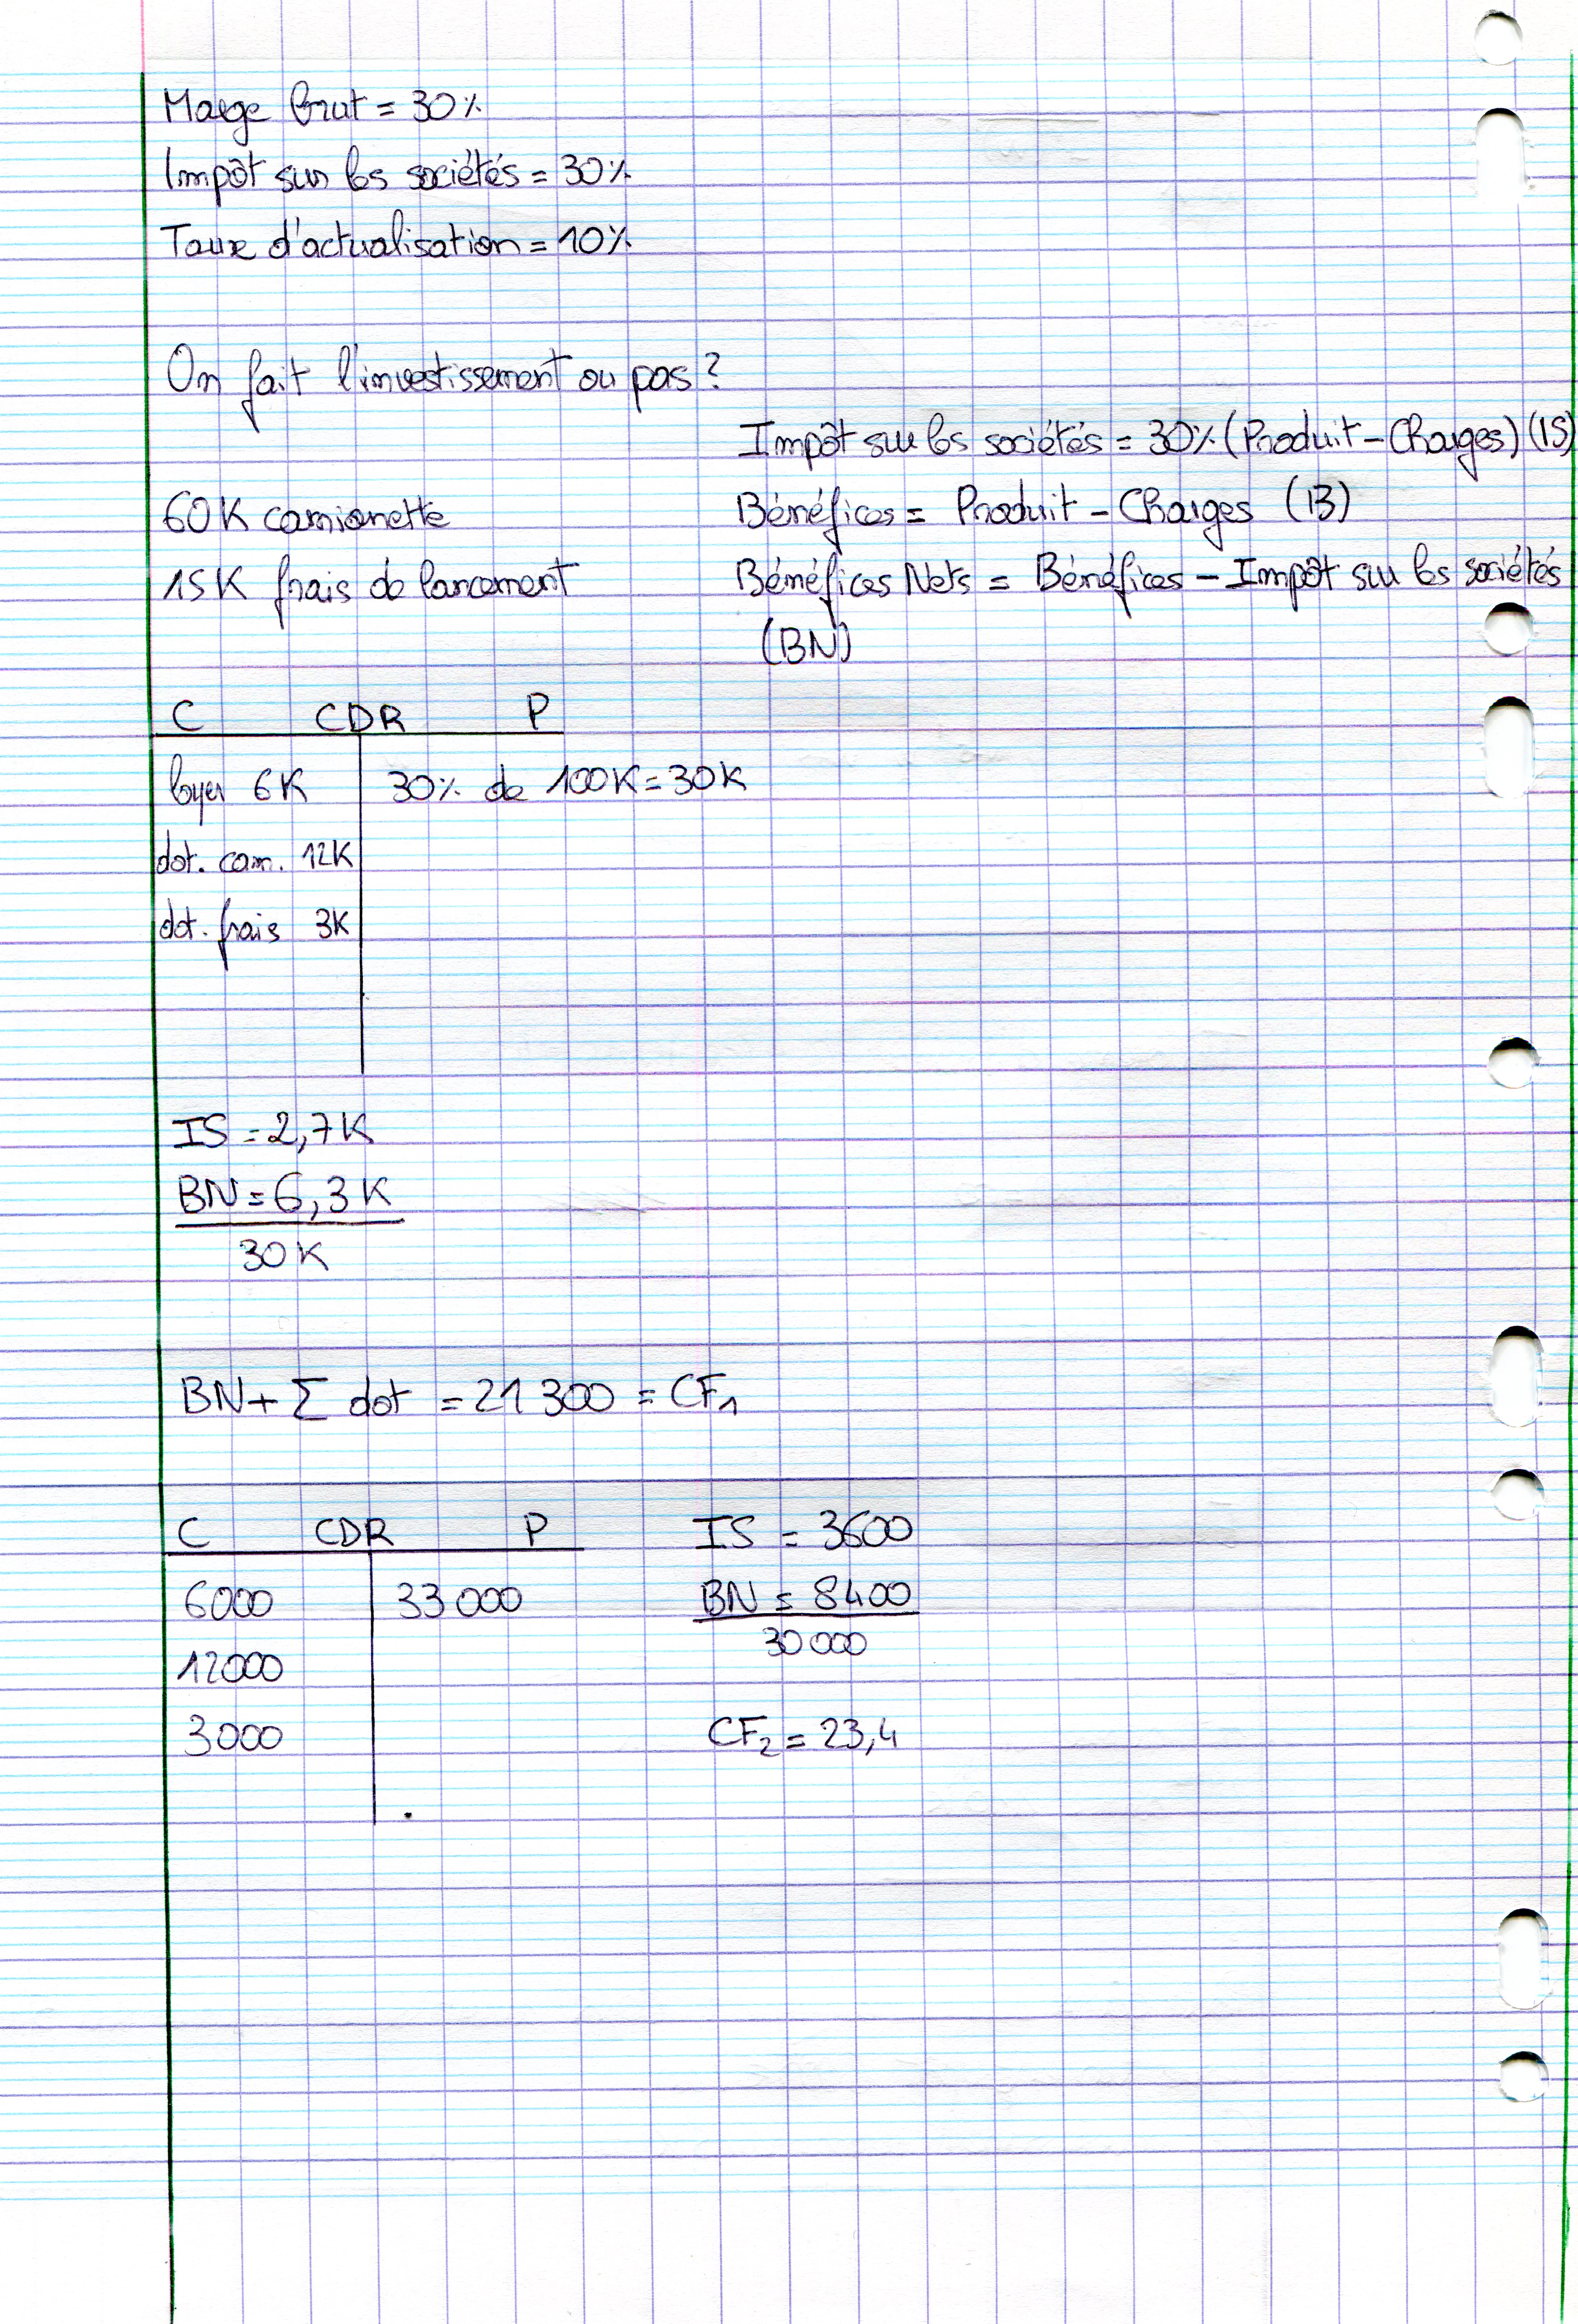 Marge brut = 30%
Impôt sur les sociétés = 30%
Taux d'actualisation = 10%
On fait l'investissement ou pas ?
Impôt sur les sociétés = 30% (Produit - Charges) (IS)
60K camionette
Bénéfices = Produit - Charges (B)
15K frais de lancement
Bénéfices Nets = Bénéfices - Impôt sur les sociétés
(BN)
C CDR P
loyer 6K 30% de 100K = 30K
dot. cam. 12K
dot. frais 3K
IS = 2,7K
BN = 6,3K
30K
BN + Σ dot = 21 300 = CF1
C CDR P IS = 3600
6000 33 000 BN = 8400
30 000
12000
3000 CF2 = 23,4